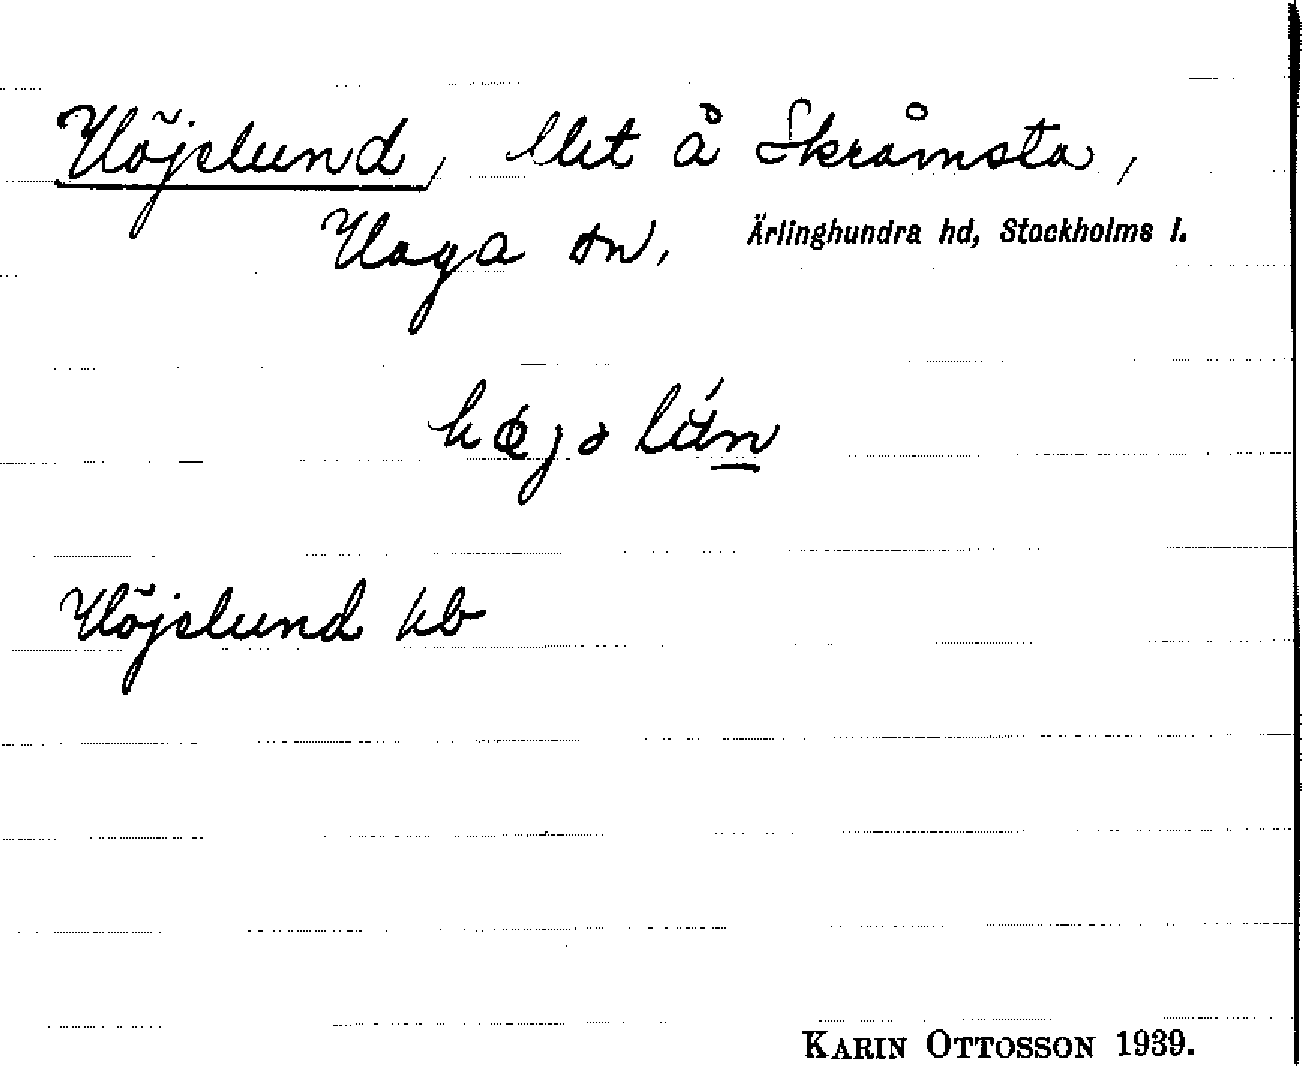 Höjslund, lht å Skråmsta,
Haga sn, Ärlinghundra hd, Stockholms l.
Höjslund kb
KARIN OTTOSSON 1939.